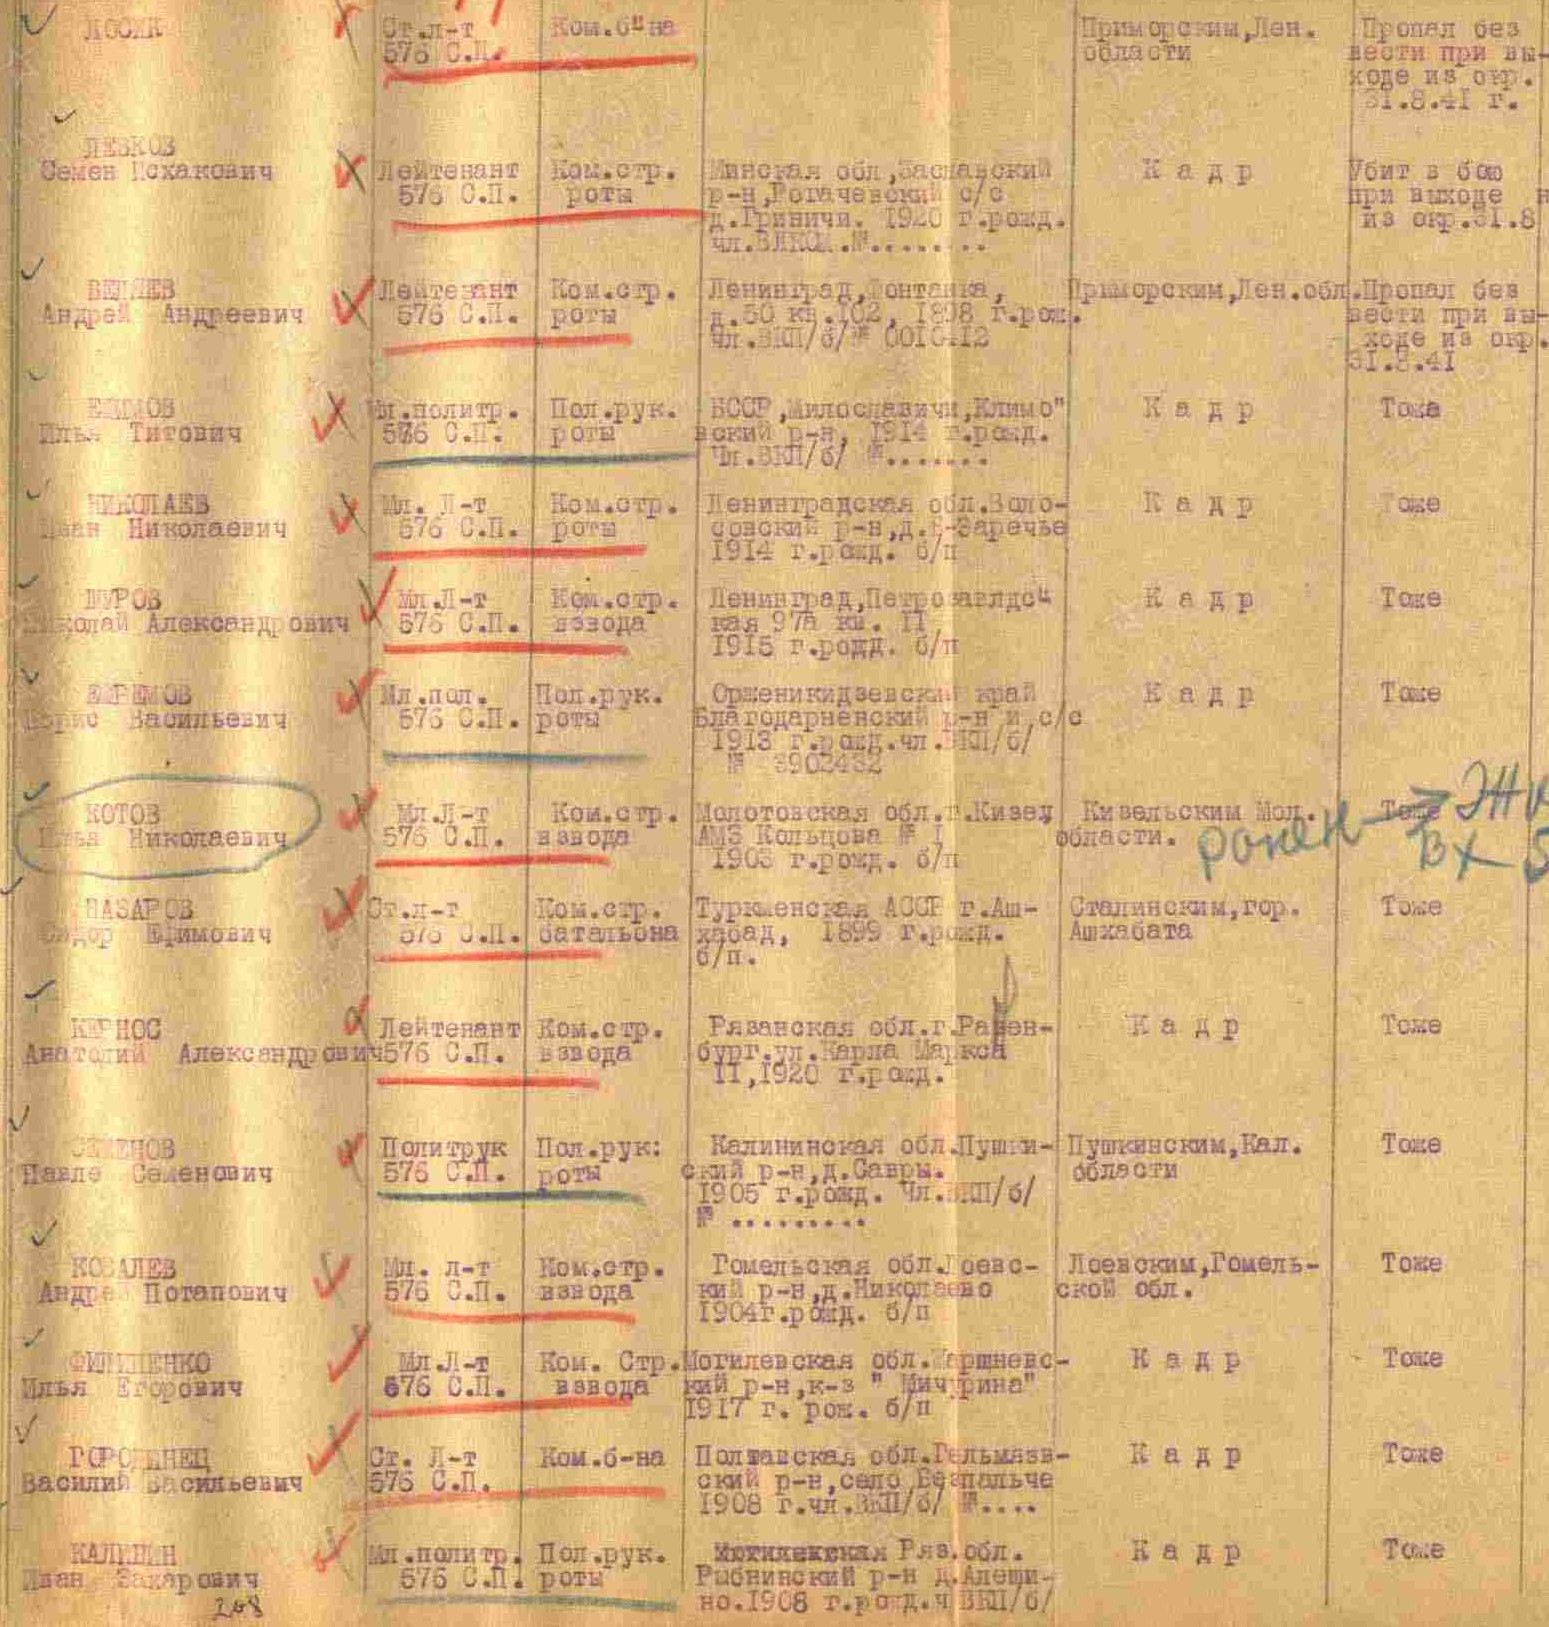 ЛОСИК Ст.л-т Ком.б"на Приморским,Лен. Пропал без
576 С.П. области вести при вы-
ходе из окр.
31.8.41 г.
ЛЕВКОВ
Семен Исхакович Лейтенант Ком.стр. Минская обл,Заславский К а д р Убит в бою
576 С.П. роты р-н,Рогачевский с/с при выходе н
д.Гриничи. 1920 г.рожд. из окр.31.8
чл.ВЛКСМ.№........
Лейтенант Ком.стр. Ленинград,Фонтанка, Приморским,Лен.обл.Пропал без
Андрей Андреевич 576 С.П. роты д.50 кв.102, 1898 г.рож. вести при вы-
чл.ВКП/б/№ ходе из окр.
31.8.41
ЕФИМОВ Мл.политр. Пол.рук. БССР,Милославичи,Климо" К а д р Тоже
Илья Титович 576 С.П. роты вский р-н, 1914 г.рожд.
Чл.ВКП/б/ №.......
НИКОЛАЕВ Мл. Л-т Ком.стр. Ленинградская обл.Воло- К а д р Тоже
Иван Николаевич 576 С.П. роты совский р-н,д. Заречье
1914 г.рожд. б/п
Мл.Л-т Ком.стр. Ленинград,Петрозавлдс" К а д р Тоже
Николай Александрович 576 С.П. взвода кая 97а кв. II
1915 г.родд. б/п
ЕФРЕМОВ Мл.пол. Пол.рук. Орженикидзевский край К а д р Тоже
Борис Васильевич 576 С.П. роты Благодарненский р-н и с/с
1913 г.рожд.чл.ВКП/б/
№ 3902432
КОТОВ Мл.Л-т Ком.стр. Молотовская обл.г.Кизел Кизельским Мол. Тоже
Илья Николаевич 576 С.П. взвода АМЗ Кольцова № I области. ранен
1903 г.рожд. б/п Вх 5
НАЗАРОВ Ст.л-т Ком.стр. Туркменская АССР г.Аш- Сталинским,гор. Тоже
Сидор Ефимович 576 С.П. батальона хабад, 1899 г.рожд. Ашхабата
б/п.
КЕРНОС Лейтенант Ком.стр. Рязанская обл.г.Раненн- К а д р Тоже
Анатолий Александрович 576 С.П. взвода бург.ул.Карла Маркса
II,1920 г.рожд.
СЕМЕНОВ Политрук Пол.рук: Калининская обл.Пушки- Пушкинским,Кал. Тоже
Павле Семенович 576 С.П. роты ский р-н,д.Савры. области
1905 г.рожд. Чл.ВКП/б/
№ .........
КОВАЛЕВ Мл. л-т Ком.стр. Гомельская обл.Лоевс- Лоевским,Гомель- Тоже
Андрей Потапович 576 С.П. взвода кий р-н,д.Николаево ской обл.
1904г.рожд. б/п
ФИЛИПЕНКО Мл.Л-т Ком. Стр. Могилевская обл. К а д р Тоже
Илья Егорович 676 С.П. взвода кий р-н,к-з " Мичурина"
1917 г. рож. б/п
Ст. Л-т Ком.б-на Полтавская обл.Гельмязв- К а д р Тоже
Василий Васильевич 576 С.П. ский р-н,село Безпальче
1908 г.чл.ВКП/б/ №....
КАЛИНИН Мл.политр. Пол.рук. Ряз.обл. К а д р Тоже
Иван Захарович 576 С.П. роты Рыбнинский р-н д.Алеши-
268 но.1908 г.рожд.ч ВКП/б/